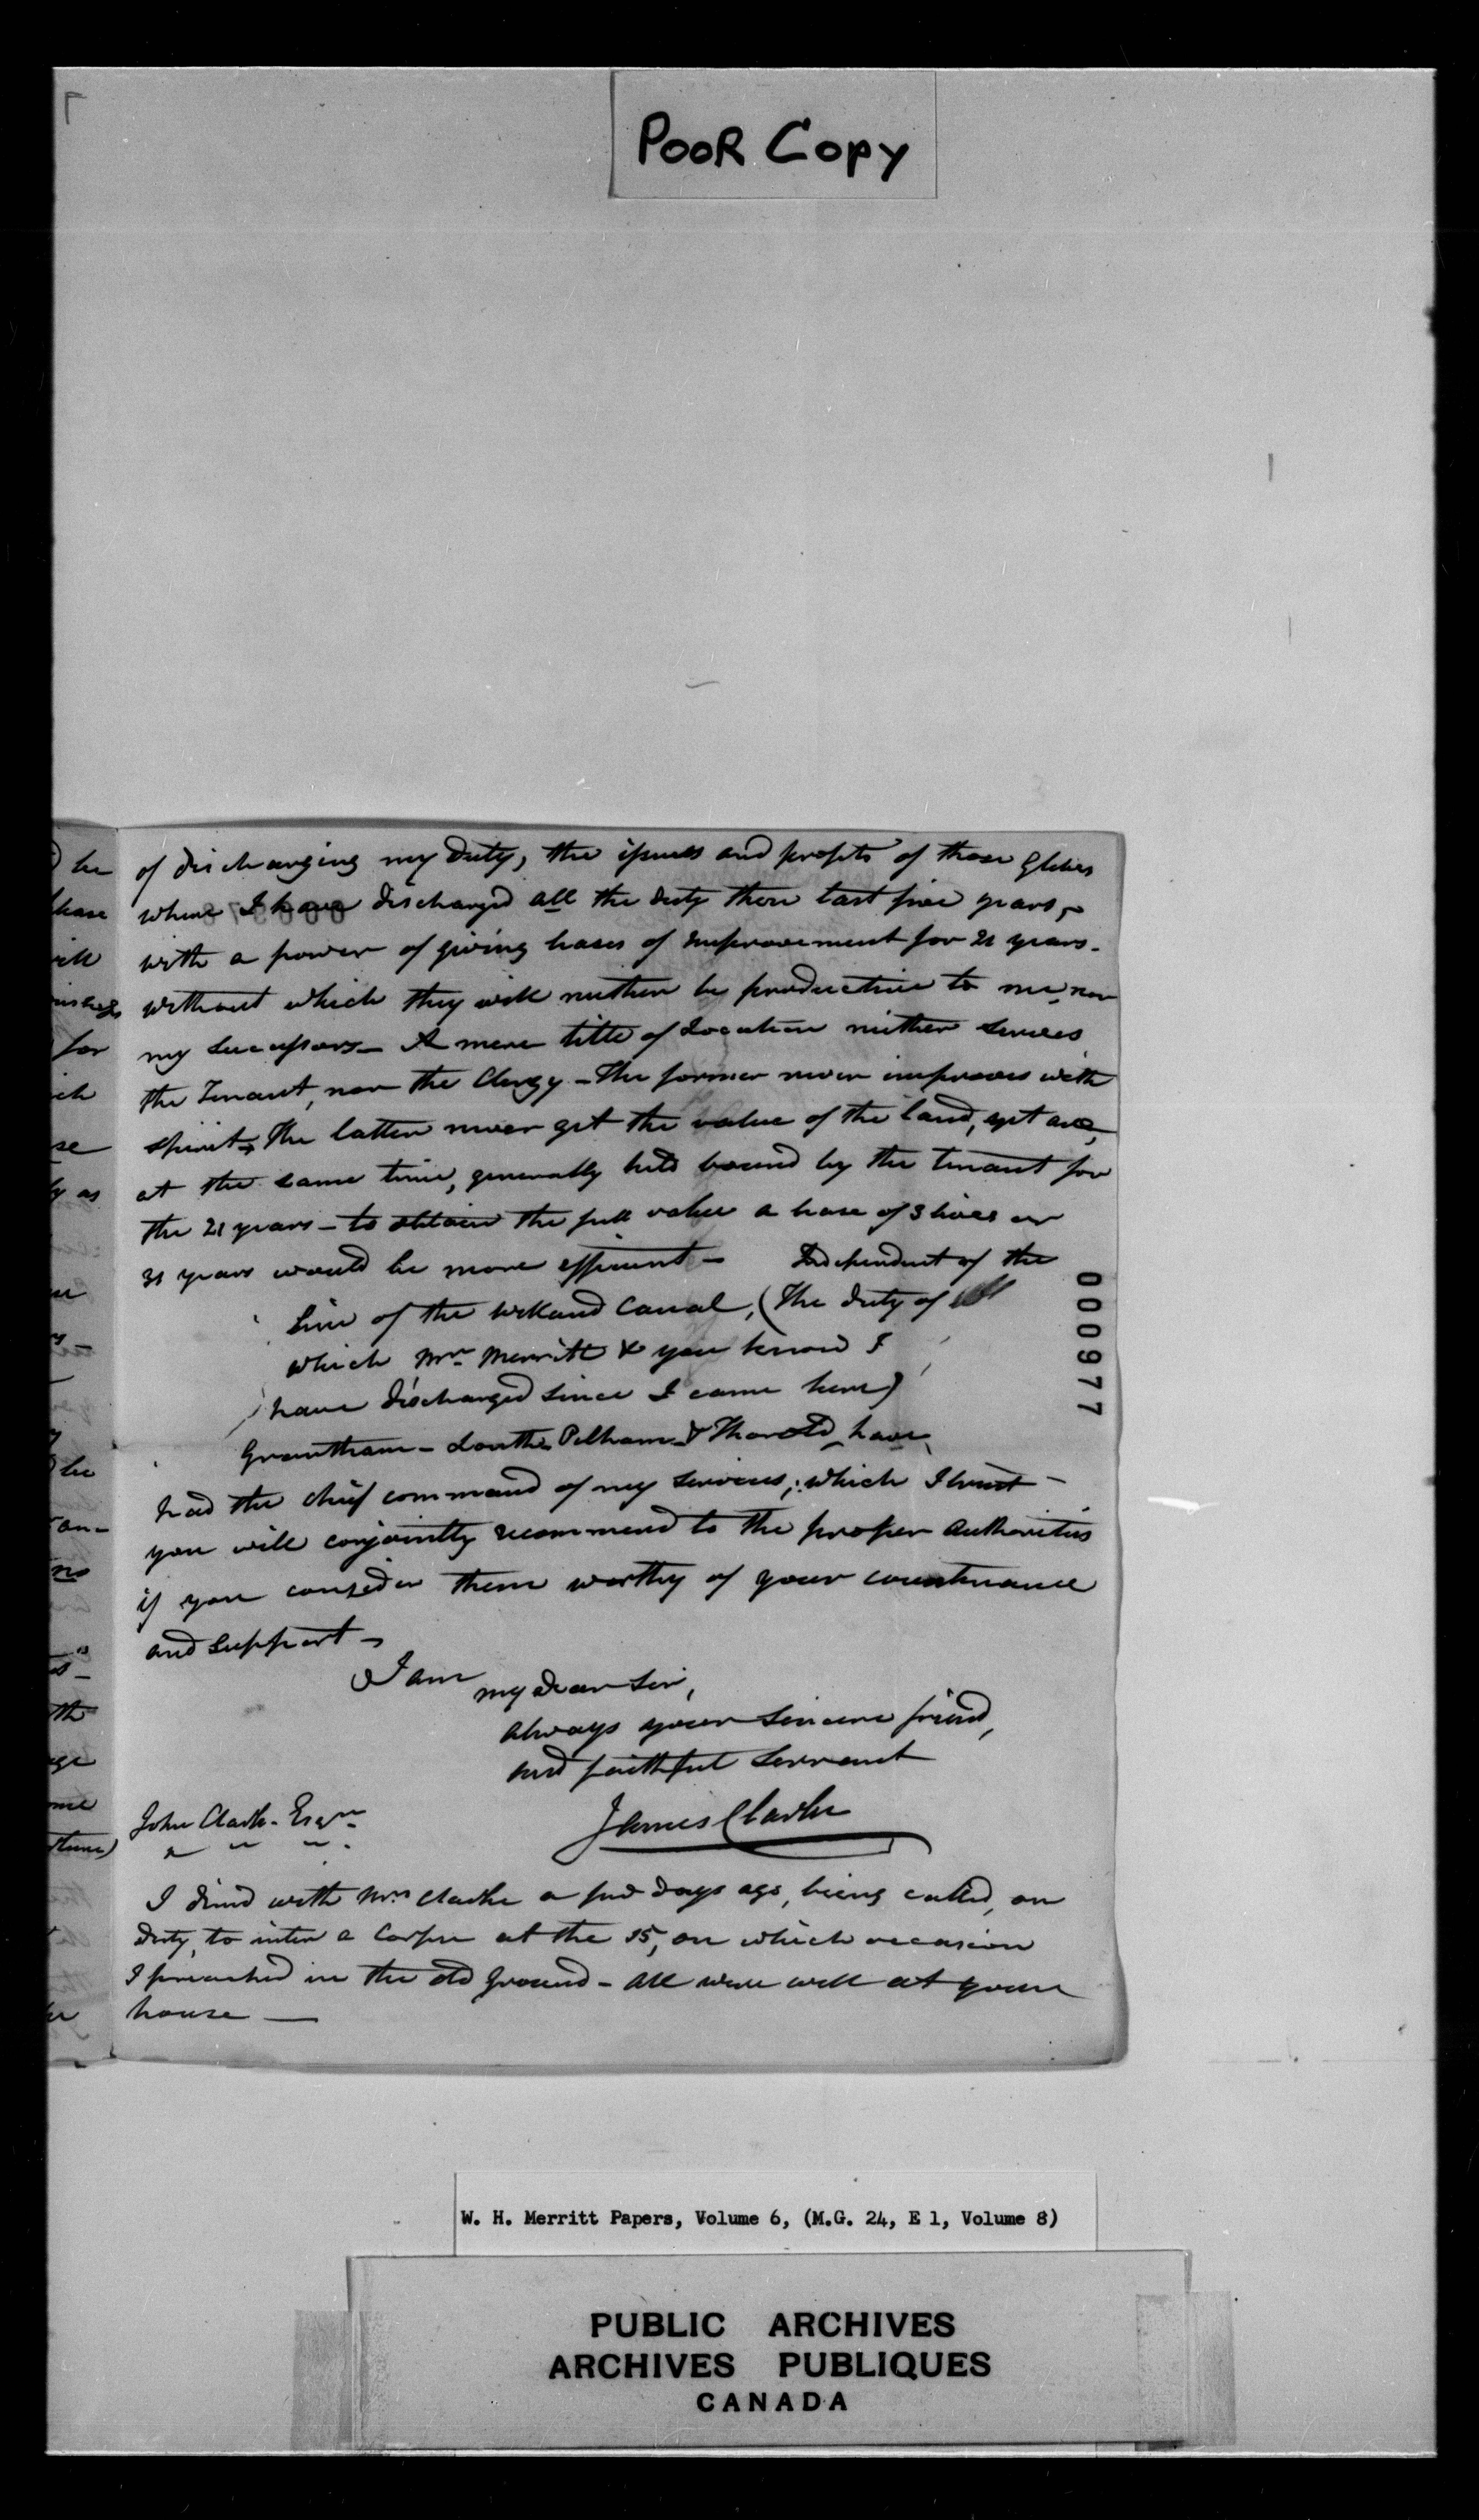 POOR COPY
of discharging my duty, the issues and profits of those Glebes
where I have discharged all the duty these last five years,
with a power of giving leases of improvement for 21 years.
without which they will neither be productive to me, nor
my successors - A mere title of Location neither serves
the Tenant, nor the Clergy - The former never improves with
spirit, The latter never get the value of the land, yet are,
at the same time, generally held bound by the tenant for
the 21 years - to obtain the full value a lease of 3 lives or
31 years would be more efficient - Independent of the
Line of the Welland Canal, (The duty of
which Mr. Merritt & you know I
have discharged since I came here)
Grantham - Louth, Pelham & Thorold, have,
had the chief command of my services; which I trust -
you will conjointly recommend to the proper authorities
if you consider them worthy of your countenance
and support -
I am
my dear Sir,
always your sincere friend,
and faithful Servant
John Clark. Esqre
James Clarke
I dined with Mrs Clarke a few days ago, being called, on
duty, to inter a corpse at the 15, on which occasion
I preached in the old ground - all were well at your
house -
000977
he
lease
will
for
ich
se
ly as
he
an-
no
th
age
ome
W. H. Merritt Papers, Volume 6, (M.G. 24, E 1, Volume 8)
PUBLIC ARCHIVES
ARCHIVES PUBLIQUES
CANADA